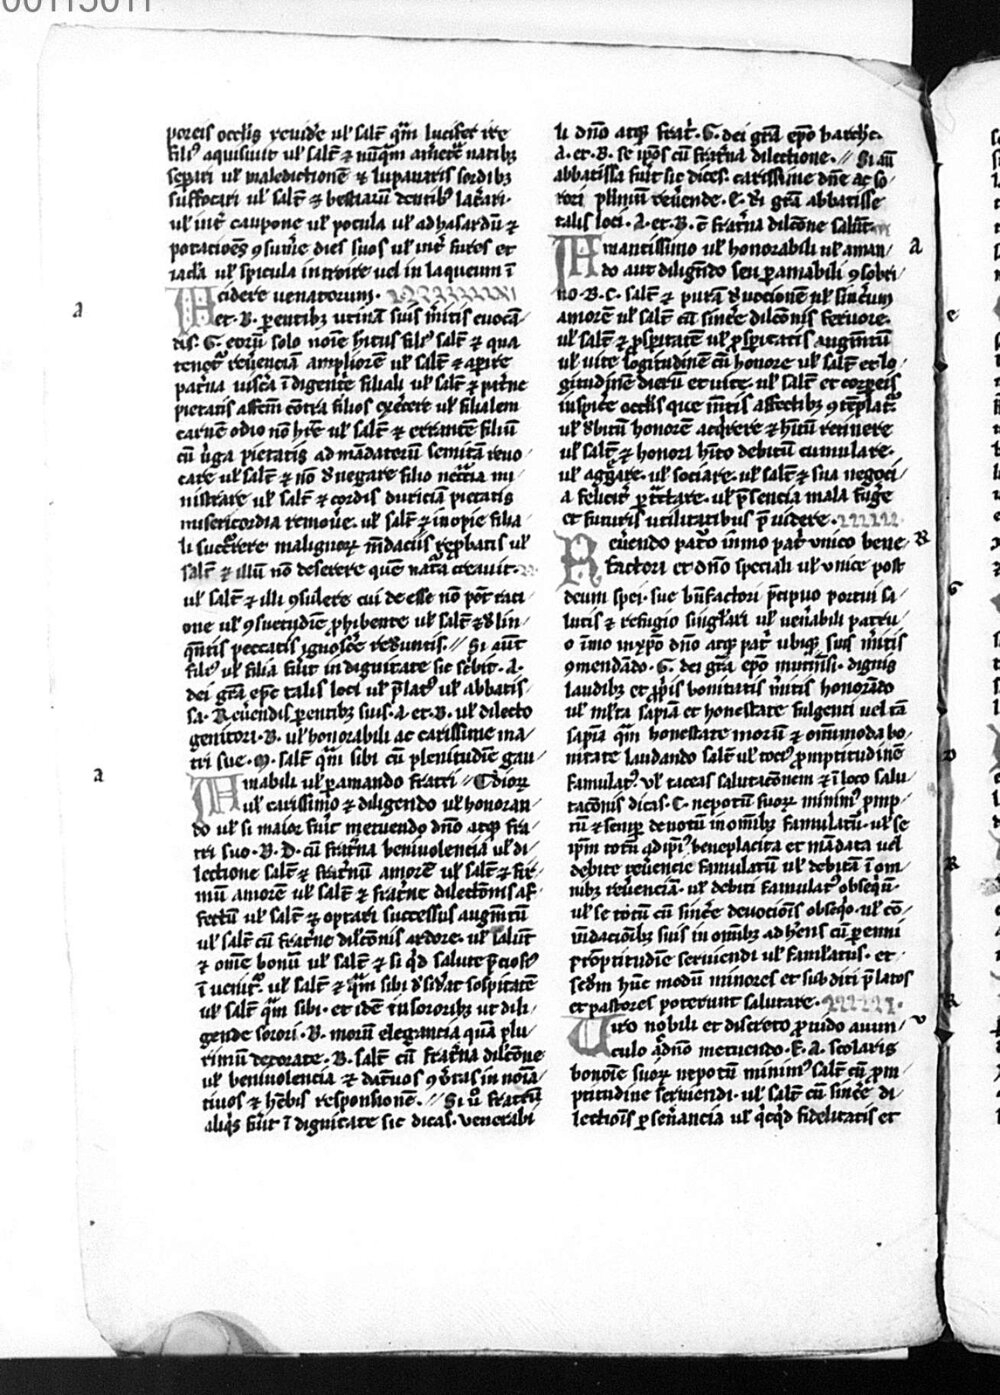 porcis occl̄is reuid'e ul' salt̄ qm̄ lucifer ire
filiꝰ aquisiuit ul' salt̄ ⁊ nūqm̄
sepiri ul' maledictionē ⁊ lupanaris sordibꝫ
suffocari ul' salt̄ ⁊ bestiarū dentibꝰ lac̄ari.
ul' int̄ caupone ul' pocula ul' ad hasardū ⁊
potacioēs ꝯsum̄e dies suos ul' int̄ fures et
ul' spicula introire uel in laqueum ī
cidere uenatorum.
A et. B. ꝑentibꝫ utinā suis m̄itis euocā
dis. G. eorū solo noīe filiꝰ salt̄ ⁊ qua
reūenciā ampliorē ul' salt̄ ⁊ apīre
pat̄na uisc̄a ī digente filiali ul' salt̄ ⁊ pat̄ne
pietatis affcm̄ cont̄a filios ex̄cere ul' filialem
carnē odio nō hr̄e ul' salt̄ ⁊ errantē filiū
cū ūga pietatis ad mādatorū semitā reuo
care ul' salt̄ ⁊ nō denegare filio mi
nistrare ul' salt̄ ⁊ cordis duriciā pietatis
misericordia remoūe. ul' salt̄ ⁊ inopie filia
li succ̄rere malignorꝝ m̄daciis rep̄batis ul'
salt̄ ⁊ illū nō deserere quē nat̄a creauit.
ul' salt̄ ⁊ illi ꝯsulere cui de esse nō pōt raci
one ul' ꝯsuetudīe ꝓhibente ul' salt̄ ⁊
peccatis ignosc̄e // Si aūt
filiꝰ ul' filia fūit in dignitate sic sc̄bit. A.
dei grā epc̄ talis loci ul' p̄latꝰ ul' abbatis
sa. Reūendis ꝑentibꝫ suis. A. et. B. ul' dilecto
genitori. B. ul' honorabili ac carissime ma
tri sue. M. salt̄ qm̄ sibi cū plenitudīe gau
A mabili ul' ꝑamando fratri //
ul' carissimo ⁊ diligendo ul' honoran
do ul' si maior fūit metuendo dn̄o atqꝫ fra
tri suo. B. D. cū frat̄na beniuolencia ul' di
lectione salt̄ ⁊ frat̄nū amorē ul' salt̄ ⁊ fir
mū amorē ul' salt̄ ⁊ frat̄ne dilectōnis af
fectū ul' salt̄ ⁊ optati successus augm̄tū
ul' salt̄ cū frat̄ne dilc̄onis ardore. ul' salutē
⁊ om̄e bonū ul' salt̄ ⁊ si qd salute p̄ciosiꝰ
ī uenit̄. ul' salt̄ ⁊ qm̄ sibi sospitatē
ul' salt̄ qm̄ sibi. et idē in sororibꝫ ut dili
gende sorori. B. morū elegancia quā plu
rimū decorate. B. salt̄ cū frat̄na dilc̄one
ul' beniuolencia ⁊ in
tiuos ⁊ responsionē. // Si ū fratrū
aliqs fūit ī dignitate sic dicas. venerabi
li dn̄o atqꝫ frat̄. G. dei grā epō
A. et. B. se ip̄os cū frat̄na dilectione. // Si aū
abbatissa fūit sic dices. carissime dn̄e ac so
rori reūende. E. dī grā abbatisse
talis loci. A. et. B. frat̄na dilc̄one salūt.
A mantissimo ul' honorabili ul' aman
do aut diligndo seu ꝑamabili ꝯsobri
no. B. C. salt̄ ⁊ purā deuocionē ul' sinc̄um
amorē ul' salt̄ cū sinc̄e dilc̄onis feruore.
ul' salt̄ ⁊ ꝓsp̄itatē ul' ꝓsperitatis augm̄tū
ul' uite lōgitudinē cū honore ul' salt̄ et lo
gitudinē dierū et uite. ul' salt̄ et corporeis
inspic̄e occl̄is que m̄tis affectibꝫ ꝯtēplat̄
ul' dbitū honorē acq̄rere ⁊ hitū retinere
ul' salt̄ ⁊ honori hīto debitum cumulare.
ul' agḡare. ul' sociare. ul' salt̄ ⁊ sua negoci
a felicit̄ ꝑt̄ctare. ul' p̄sencia mala fuḡe
et futuris utilitatibus p̄uidere.
R eūendo pat̄o īmo pat̄i unico bene
factori et dn̄o speciali ul' unice post
deum spei. sue bn̄factori p̄cipuo portui sa
lutis ⁊ refugio singl'ari ul' ueīabili patru
o īmo in xpō dn̄o atqꝫ pat̄ ubiqꝫ suis m̄itis
ꝯmendādo. G. dei grā epō mutin̄si. dignis
laudibꝫ et ꝓp̄is bonitatis m̄itis honorādo
ul' ml'ta sapīa et honestate fulgenti uel tā
sapīa qm̄ honestate morū ⁊ om̄imoda bo
nitate laudando salt̄ ul' tociꝰ ꝓmptitudinē
famulatꝰ. Vl' taceas salutacōnem ⁊ ī loco salu
tacōnis dicas. C. nepotū suorꝝ minimꝰ ꝓmp
tū ⁊ semꝑ deuotū in om̄ibꝫ famulatū. ul' se
ip̄m totū beneplacita et mādata uel
debite reūencie famulatū ul' debitā ī om
nibꝫ reūenciā. ul' debiti famulatꝰ obseqū.
ul' se totū cū sinc̄e deuocionis obseqo. ul' cō
m̄dacōibꝫ suis in om̄ibꝫ adh̄ens cū ꝑenni
ꝓmptitudīe seruiendi ul' famulatus. et
sedm̄ hūc modū minores et subditi p̄latos
et pastores poterunt salutare.
V iro nobili et discreto ꝓuido auun
culo q̄ dn̄o metuendo. E. A. scolaris
bononīe suorꝝ nepotū minimꝰ salt̄ cū ꝓm
ptitudine seruiendi. ul' salt̄ cū sinc̄e di
lectiōis ꝑseūancia ul' qcqd fidelitatis et